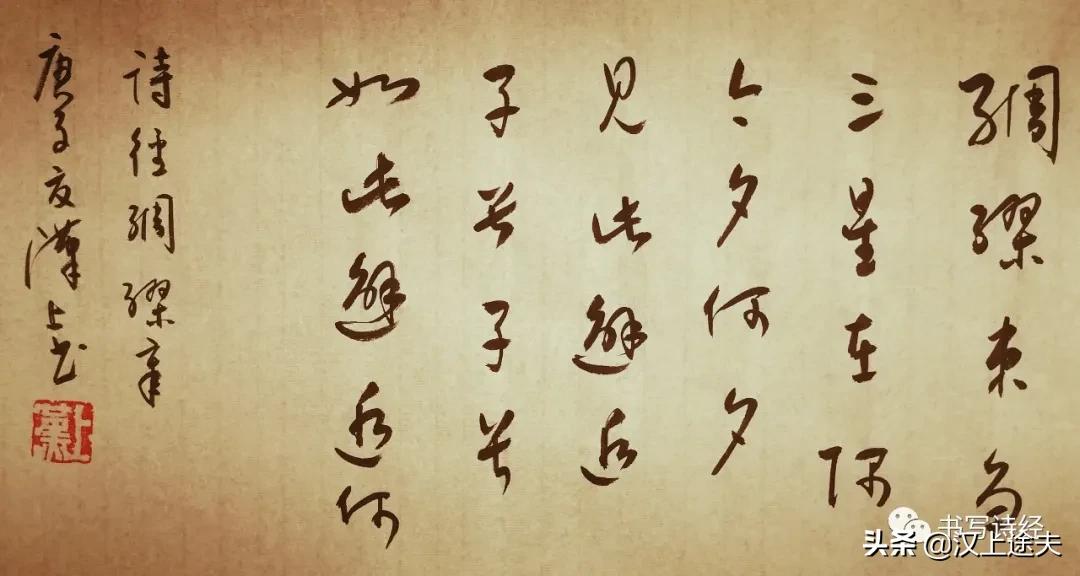 綢繆束刍
三星在隅
今夕何夕
见此邂逅
子兮子兮
如此邂逅何
詩经綢繆章
庚子夏漢上书
漢上
书写诗经
头条 @汉上途夫